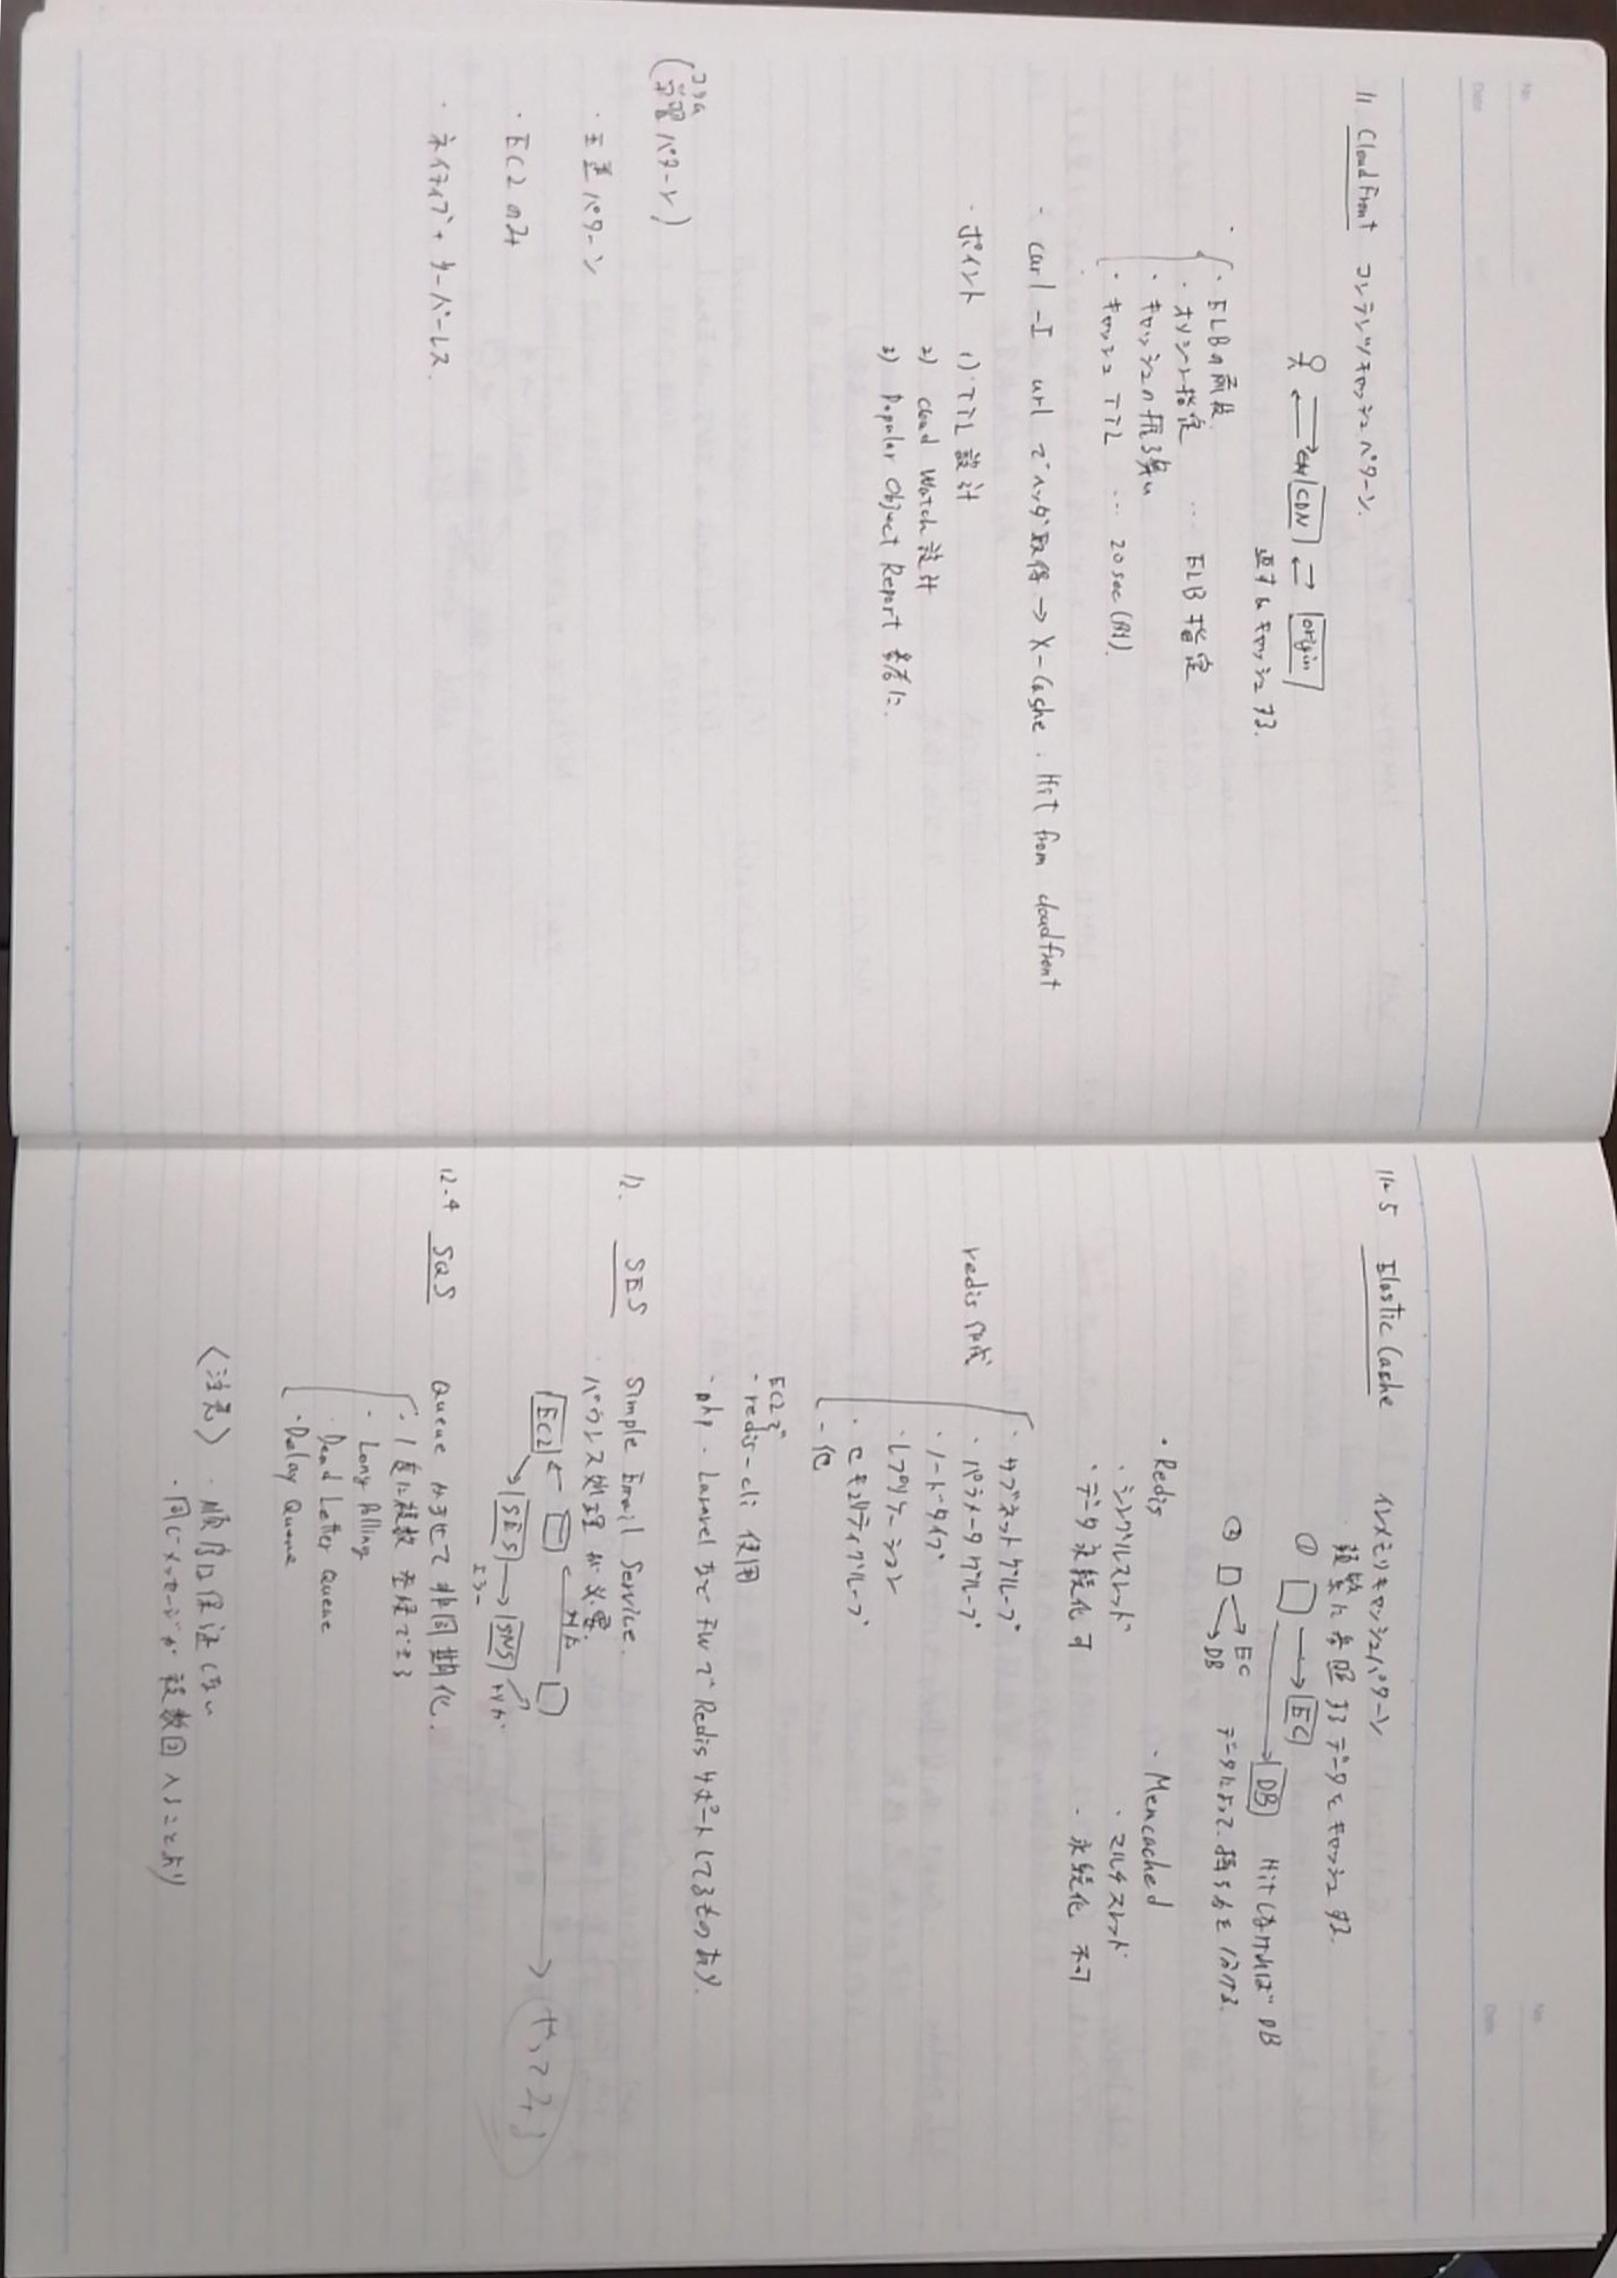 11 CloudFront コンテンツキャッシュパターン.
CDN
origin
・ELBの前段
・オリジン指定 … ELB指定
・キャッシュの振る舞い
・キャッシュTTL … 20sec(例).
・curl -I url でヘッダ取得 → X-Cashe : Hit from cloudfront
・ポイント 1) TTL設計
2) Cloud Watch設計
3) Popular Object Report 参考に.
コラム
(学習パターン)
・王道パターン
・EC2のみ
・ネイティブ + サーバーレス.
11-5 Elastic Cashe インメモリキャッシュパターン
頻繁に参照するデータをキャッシュする.
① EC
DB Hitしなければ DB
② EC
DB データによって、振る舞を分ける.
・Redis ・Memcached
・シングルスレッド ・マルチスレッド
・データ永続化 可 ・永続化 不可
redis
・サブネットグループ
・パラメータグループ
・ノードタイプ
・レプリケーション
・セキュリティグループ
・他
EC2で
・redis-cli 使用
・php・Laravelなど FWで Redis サポートしてるものあり.
12. SES Simple Email Service.
・バウンス処理が必要.
EC2
SES → SNS
エラー
やってみよう
12-4 SQS Queue かませて非同期化.
・1度に複数 処理できる
・Long Polling
・Dead Letter Queue
・Delay Queue
〈注意〉・順序は保証しない
・同じメッセージが複数回入ることあり